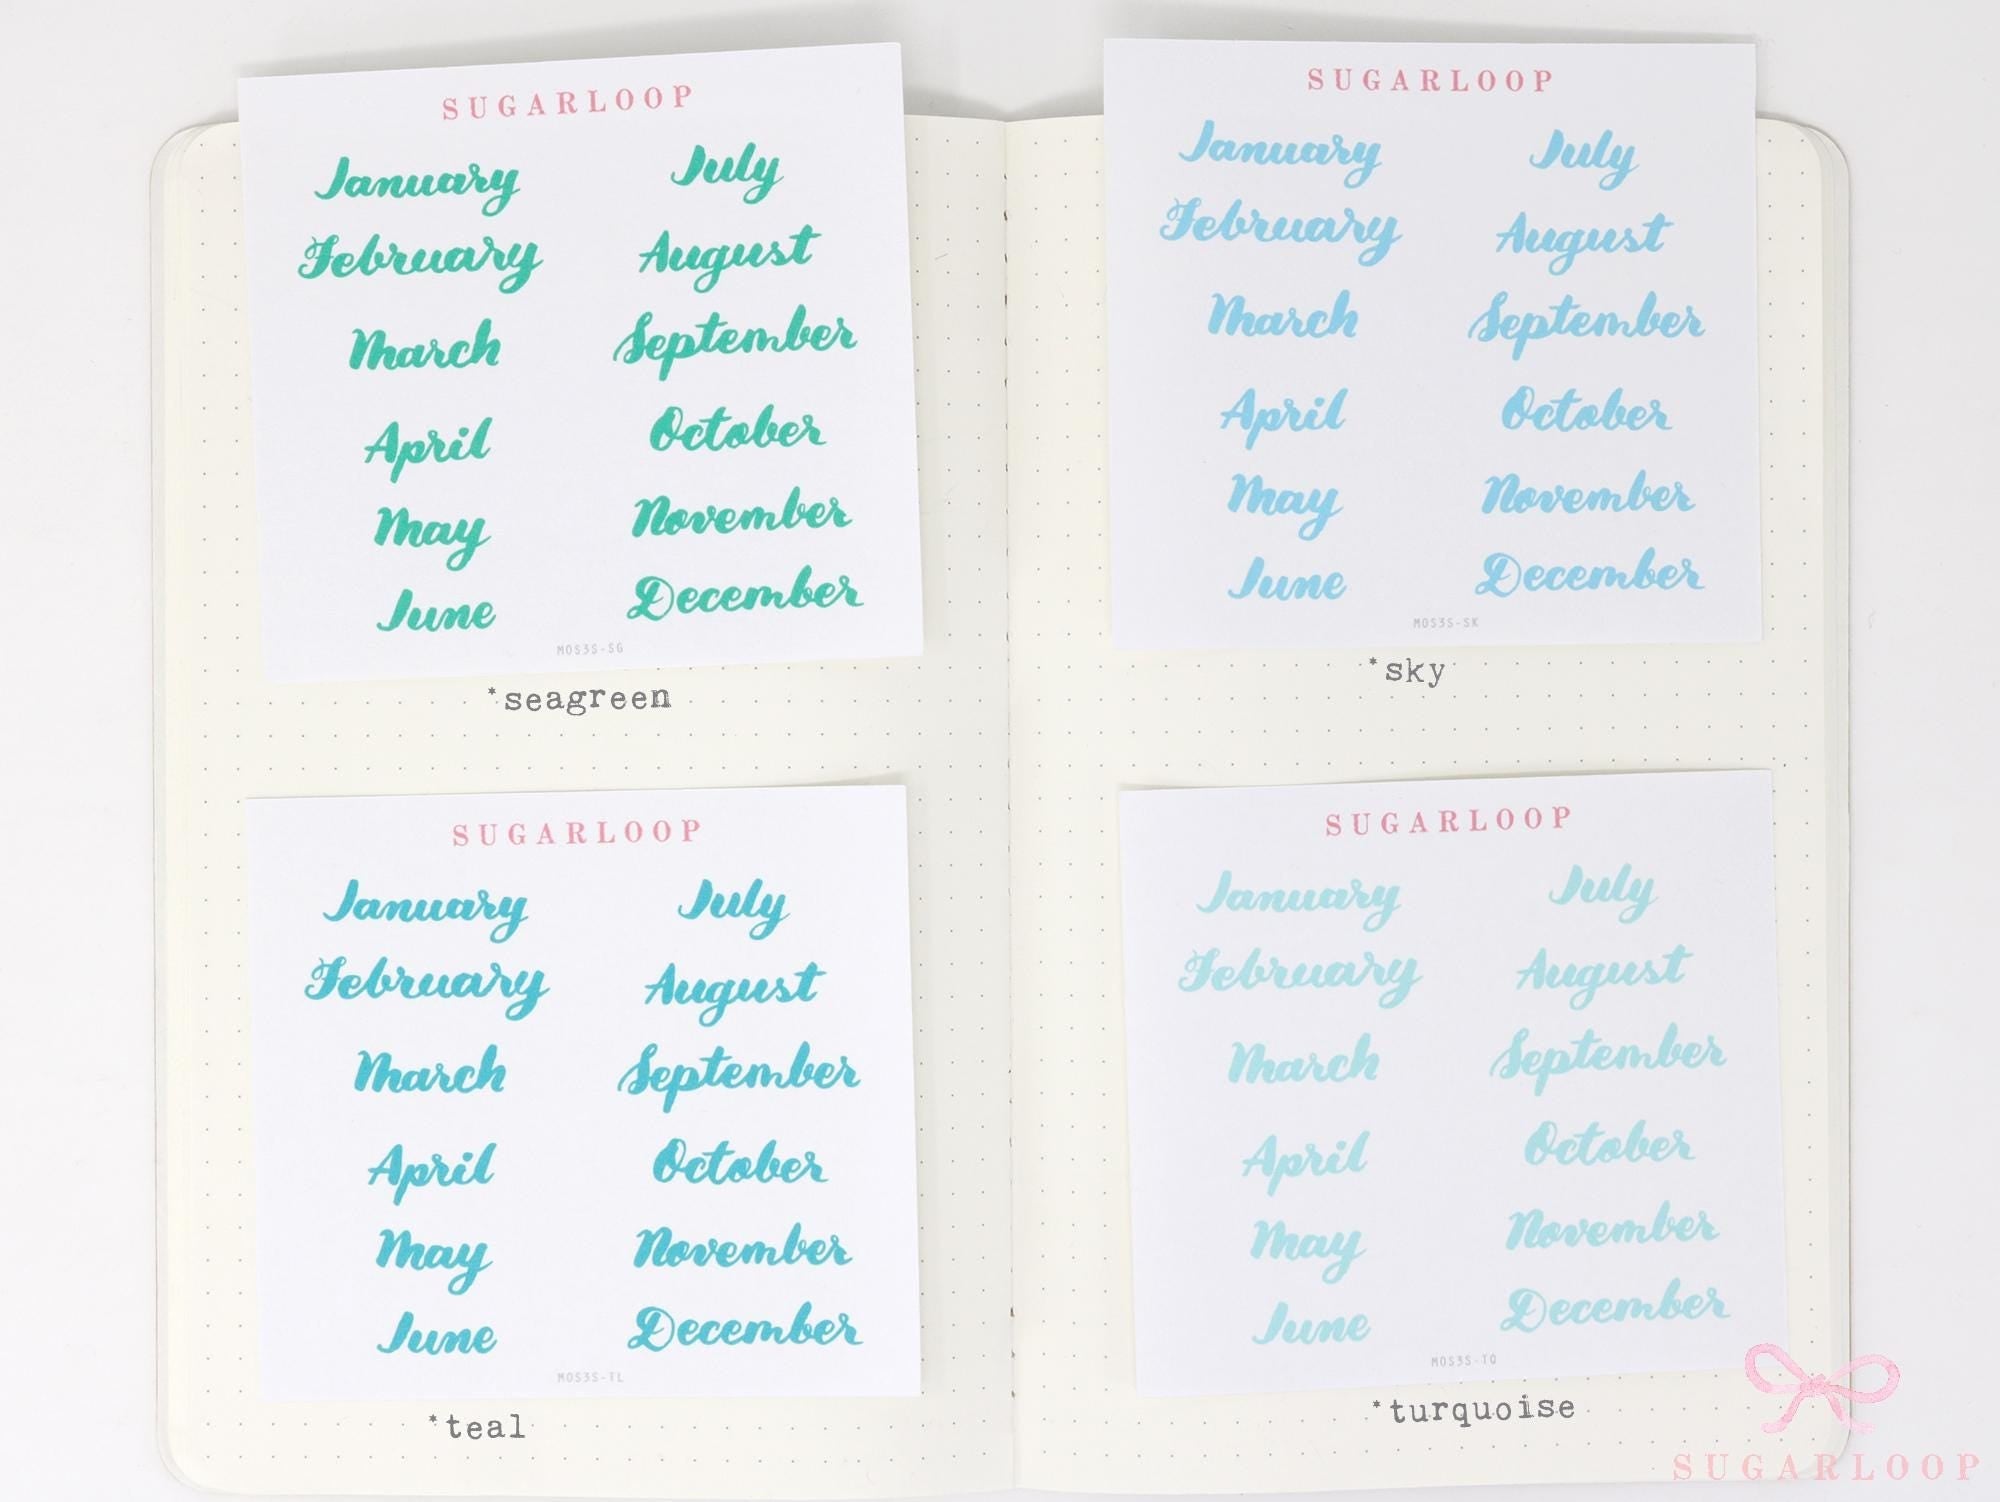 SUGARLOOP
January
February
March
April
May
June
July
August
September
October
November
December
MOS3S-SG
*seagreen
SUGARLOOP
January
February
March
April
May
June
July
August
September
October
November
December
MOS3S-SK
*sky
SUGARLOOP
January
February
March
April
May
June
July
August
September
October
November
December
MOS3S-TL
*teal
SUGARLOOP
January
February
March
April
May
June
July
August
September
October
November
December
MOS3S-TQ
*turquoise
SUGARLOOP